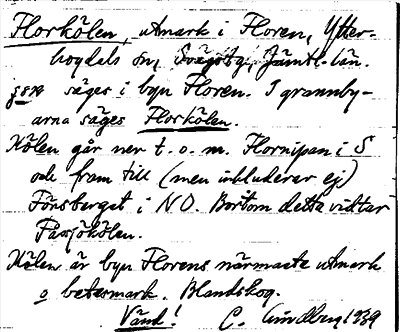 Florkölen, utmark i Floren, Ytter-
hogdals sn, Jämtl. län.
säges i byn Floren. I grannby-
arna säges Florkölen.
Kölen går ner t.o.m. Flornipan i S
och fram till (men inkluderar ej)
Fönsberget i NO. Bortom detta vidtar
Kölen är byn Florens närmaste utmark
o betesmark. Blandskog.
Vänd! C. Lundberg 1939